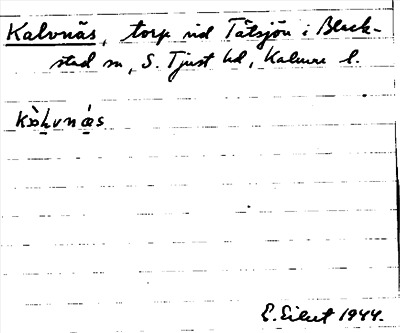 Kalvnäs, torp vid Tåtsjön i Black-
stad sn, S. Tjust hd, Kalmar l.
E. Eilert 1944.